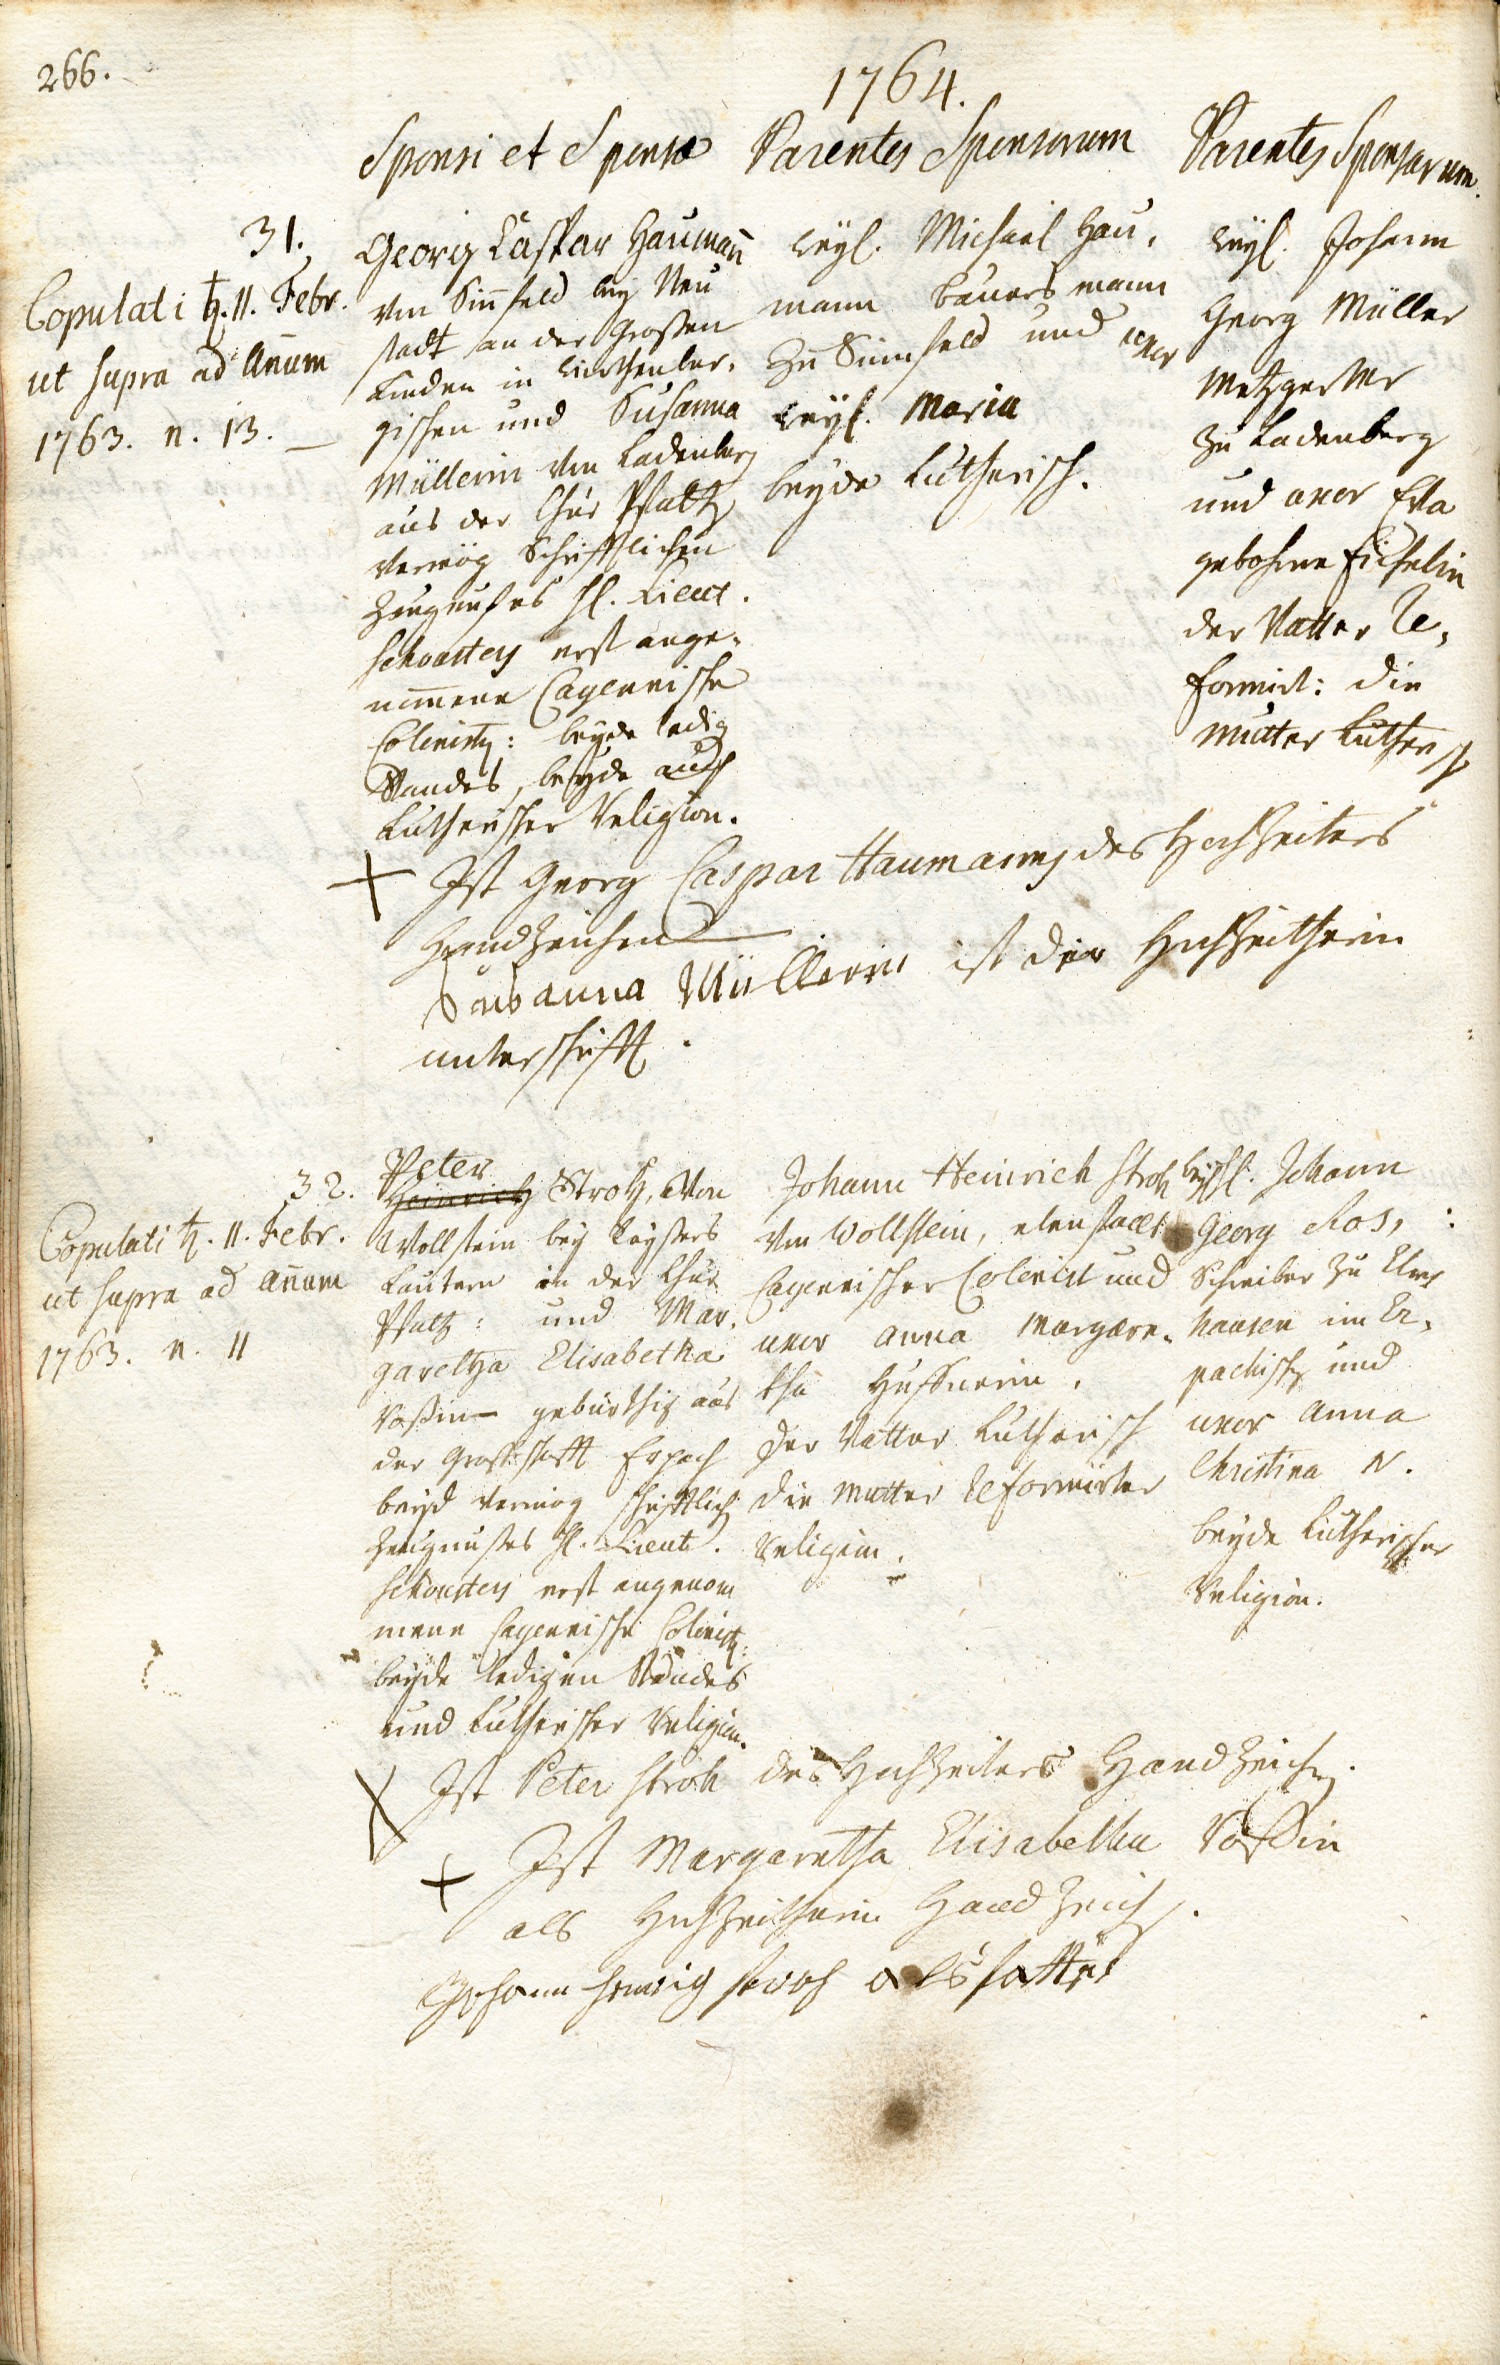 266.
1764.
Sponsi et Sponsæ
Parentes Sponsorum
Parentes Sponsarum.
31.
Copulati ♄. 11. Febr.
ut supra ad Añum
1763. n. 13.
Georg Caspar Haumañ
von Sinsfeld bey Neu
stadt an der Großen
Linden in Wirthenber,
gischen und Susanna
Müllerin von Ladenberg
aus der Chur Pfaltz
vermög Schrifftlichen
Zeugnußes H. Lieut.
Schouster erst ange,
nom̄ene Cayennische
Colonisten: beyde ledig
Standes, beyde auch
Lutherischer Religion.
weyl. Michael Hau,
mann Bauersmann
zu Sinsfeld und uxor
weyl. Maria
beyde Lutherisch.
weyl. Johann
Georg Müller
Metzger
zu Ladenberg
und uxor Eva
gebohrne
der Vatter Re,
formirt: die
Mutter Lutherisch
+ Ist Georg Caspar Haumanns des Hochzeiters
Handzeichen
Susanna Müllerin ist der Hochzeitherin
unterschrifft.
32.
Copulati ♄. 11. Febr.
ut supra ad añum
1763. n. 11
Peter
Heinrich Stroh, von
Wollstein bey Keysers
Lautern in der Chur
Pfaltz: und Mar,
garetha Elisabetha
Roßin gebürthig aus
der Graffschafft Erpach
beyd vermög schrifftlich
Zeugnußes H. Lieut.
Schouster erst angenom
mene Cayennische Colonisten:
beyde ledigen Standes
und Lutherischer Religion.
Johann Heinrich Stroh
von Wollstein, ebenfalls
Cayennischer Colonist und
uxor Anna Margare,
tha Huffnerin.
der Vatter Lutherisch
die Mutter Reformirter
Religion.
weyl. Johann
Georg Ros,
Schreiber zu
hausen im Er,
pachisch und
uxor Anna
Christina N.
beyde Lutherischer
Religion.
X Ist Peter Stroh des Hochzeiters Handzeichen.
+ Ist Margaretha Elisabetha Roßin
als Hochzeitherin Handzeich.
Johann Henrich stroh als fatter